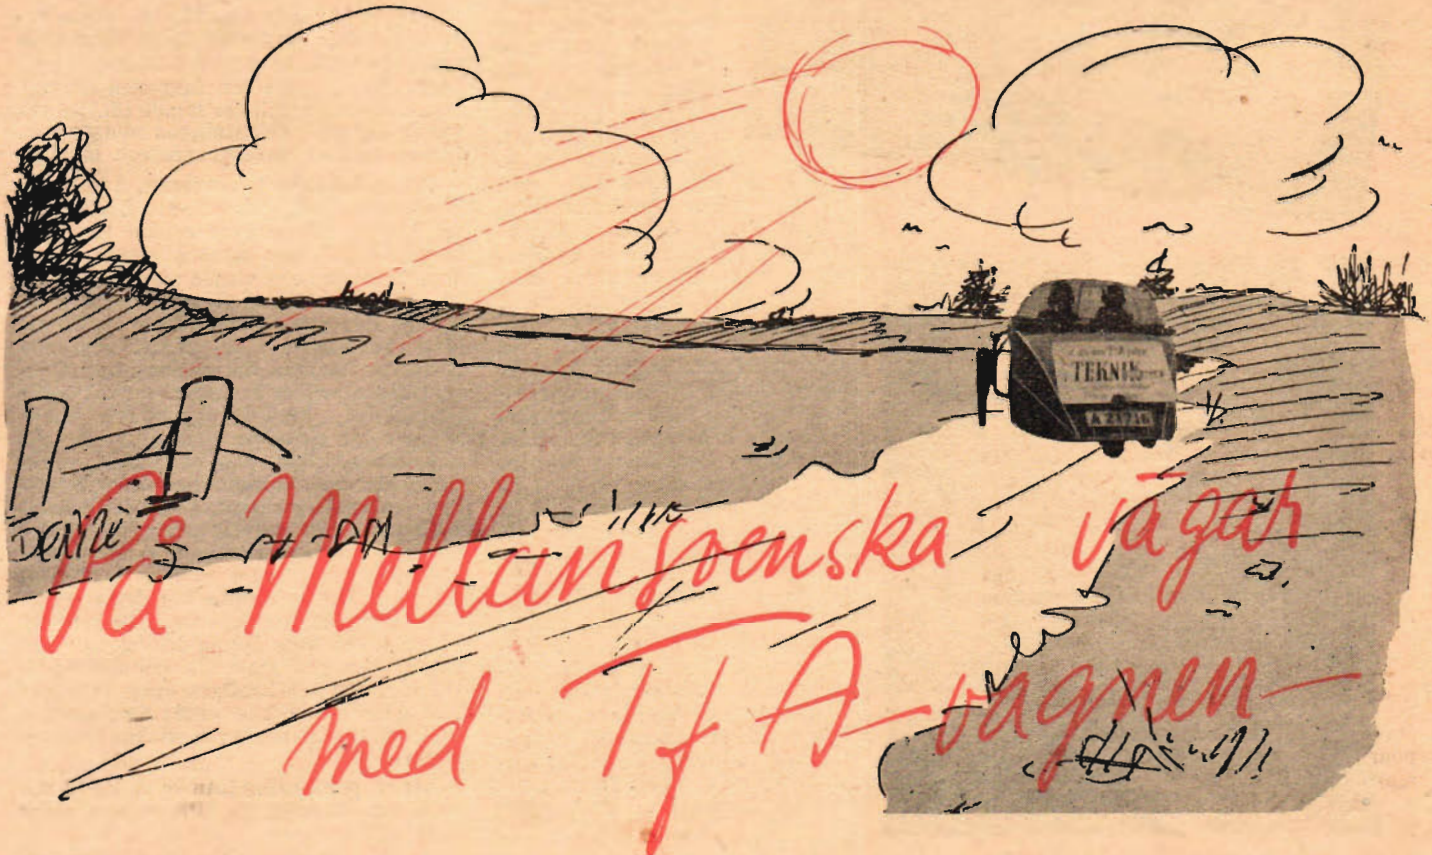 TEKNIK
A 21716
DENZÉ
På Mellansvenska vägar
med TfA-vagnen-